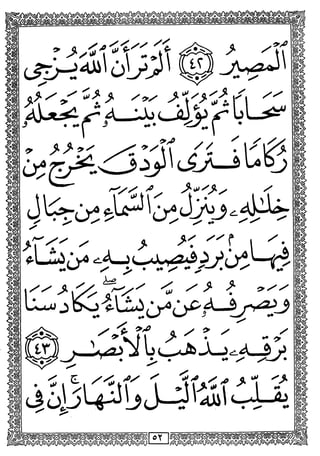 ٱلْمَصِيرُ ٤٢ أَلَمْ تَرَ أَنَّ ٱللَّهَ يُزْجِى
سَحَابًا ثُمَّ يُؤَلِّفُ بَيْنَهُۥ ثُمَّ يَجْعَلُهُۥ
رُكَامًا فَتَرَى ٱلْوَدْقَ يَخْرُجُ مِنْ
خِلَٰلِهِۦ وَيُنَزِّلُ مِنَ ٱلسَّمَآءِ مِن جِبَالٍ
فِيهَا مِنۢ بَرَدٍ فَيُصِيبُ بِهِۦ مَن يَشَآءُ
وَيَصْرِفُهُۥ عَن مَّن يَشَآءُ ۖ يَكَادُ سَنَا
بَرْقِهِۦ يَذْهَبُ بِٱلْأَبْصَٰرِ ٤٣
يُقَلِّبُ ٱللَّهُ ٱلَّيْلَ وَٱلنَّهَارَ ۚ إِنَّ فِى
٥٢